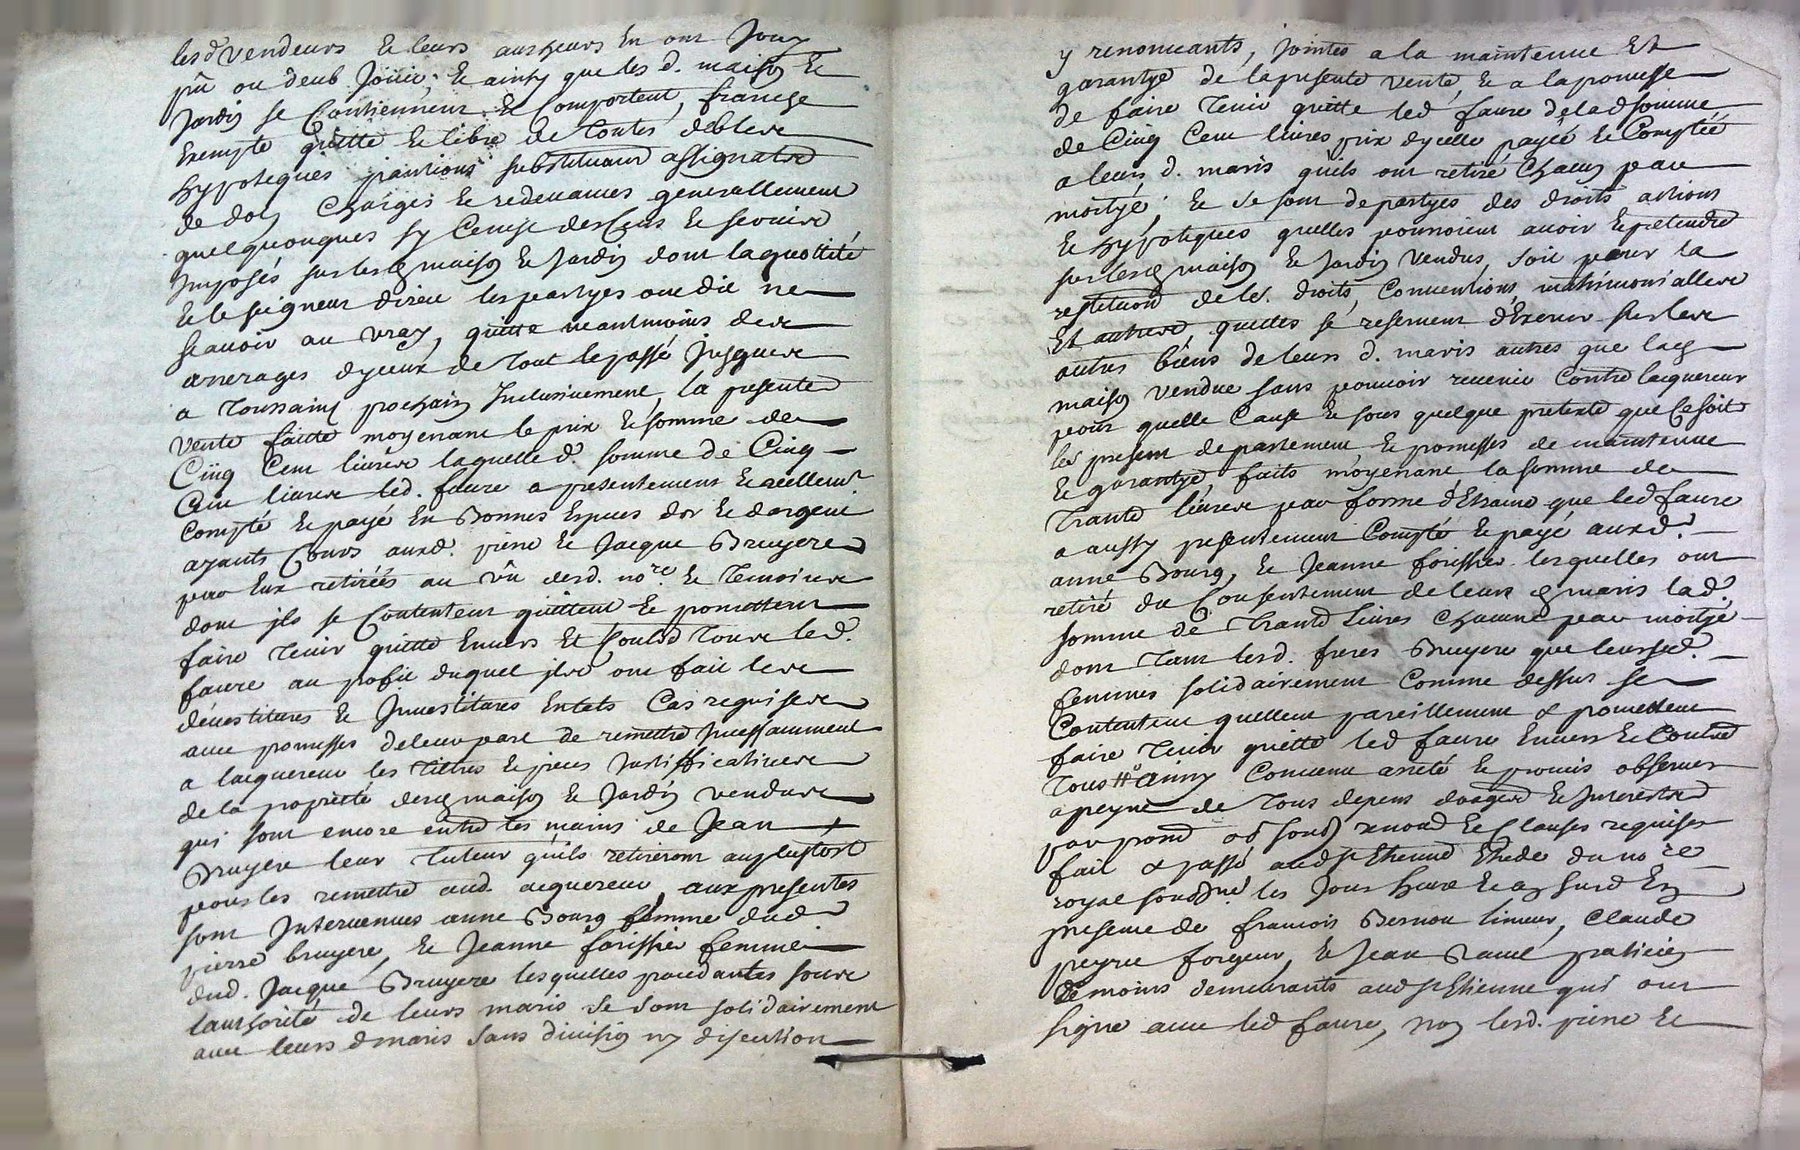 lesd vendeurs et leurs autheurs en ont Jouy
pû ou deub Joüir, et ainsy que les d. maison et
Jardin se Contiennent et Comportent, franche
exempte quitte et libre de toutes debtes
hypoteques pantions substitutions assignats
de dot Charges et redevances generallement
quelquonques sy Cense des Cens et service
Imposés sur lesd maison et Jardin dont la quottité
et le seigneur direct les partyes ont dit ne
scavoir au vray, quitte neantmoins des
arrerages dyceux de tout le passé Jusques
a toussaint prochain Inclusivement, la presente
vente faitte moyenant le prix et somme de
Cinq Cent livres laquelle d. somme de Cinq
Cent livres led. faure a presentement et reellemt
Compté et payé en Bonnes Especes dor et dargent
ayants Cours auxd. pierre et Jacque Bruyere
par Eux retirées au vû desd. nore et temoins
dont ils se Contentent quittent et promettent
faire tenir quitte Envers et Contre tous led.
faure au profit duquel ils ont fait les
devestitures et Investitures en tels Cas requises
avec promesses de leur part de remettre Incessamment
a lacquereur les tiltres et pieces Justifficatives
de la proprietté desd maison et Jardin vendus
qui sont encore entre les mains de Jean
Bruyere leur tuteur quils retireront au plustost
pour les remettre aud. acquereur, aux presentes
sont Intervenues anne Bourg femme dud
pierre bruyere, et Jeanne forissier femme
dud. Jacque Bruyere lesquelles procedantes sous
lauthorité de leurs maris se sont solidairement
avec leurs d maris sans division ny discution
y renoncants, jointes a la maintenue Et
garantye de la presente vente, et a la promesse
de faire tenir quitte led faure de lad somme
de Cinq Cent livres prix dycelle payée et Comptée
a leurs d. maris quils ont retiré Chacun par
moityé, et se sont departyes des droits actions
et hypoteques quelles pourroient avoir et pretendre
sur lesd maison et Jardin vendus, soit pour la
restitution de les. droits, Conventions matrimonialles
Et autres, quelles se reservent dExercer sur les
autres biens de leurs d. maris autres que lad
maison vendue sans pouvoir revenir Contre lacquereur
pour quelle Cause et sous quelque pretexte que Ce soit
les present departement et promesses de maintenue
et garantye, faits moyenant la somme de
trante livres par forme dEstraine que led faure
a aussy presentement Compté et payé auxd.
anne Bourg, et Jeanne forissier lesquelles ont
retiré du Consentement de leurs d maris lad.
somme de trante Livres Chacune par moityé
dont tant lesd. freres Bruyere que leursd.
femmes solidairement Comme dessus se
Contentent quittent pareillement & promettent
faire tenir quitte led faure Envers et Contre
tous # ainsy Convenu arreté et promis observer
a peyne de tous depens domages et Interests
par prom ob soub renon et Clauses requises
fait & passé aud st Etienne Etude du nore
royal soubsné les Jour heure et an susd En
presence de francois Bernou limeur, Claude
peyre forgeur, et Jean Ramé praticien
temoins demeurants aud st Etienne qui ont
signe avec led faure, non lesd. pierre et